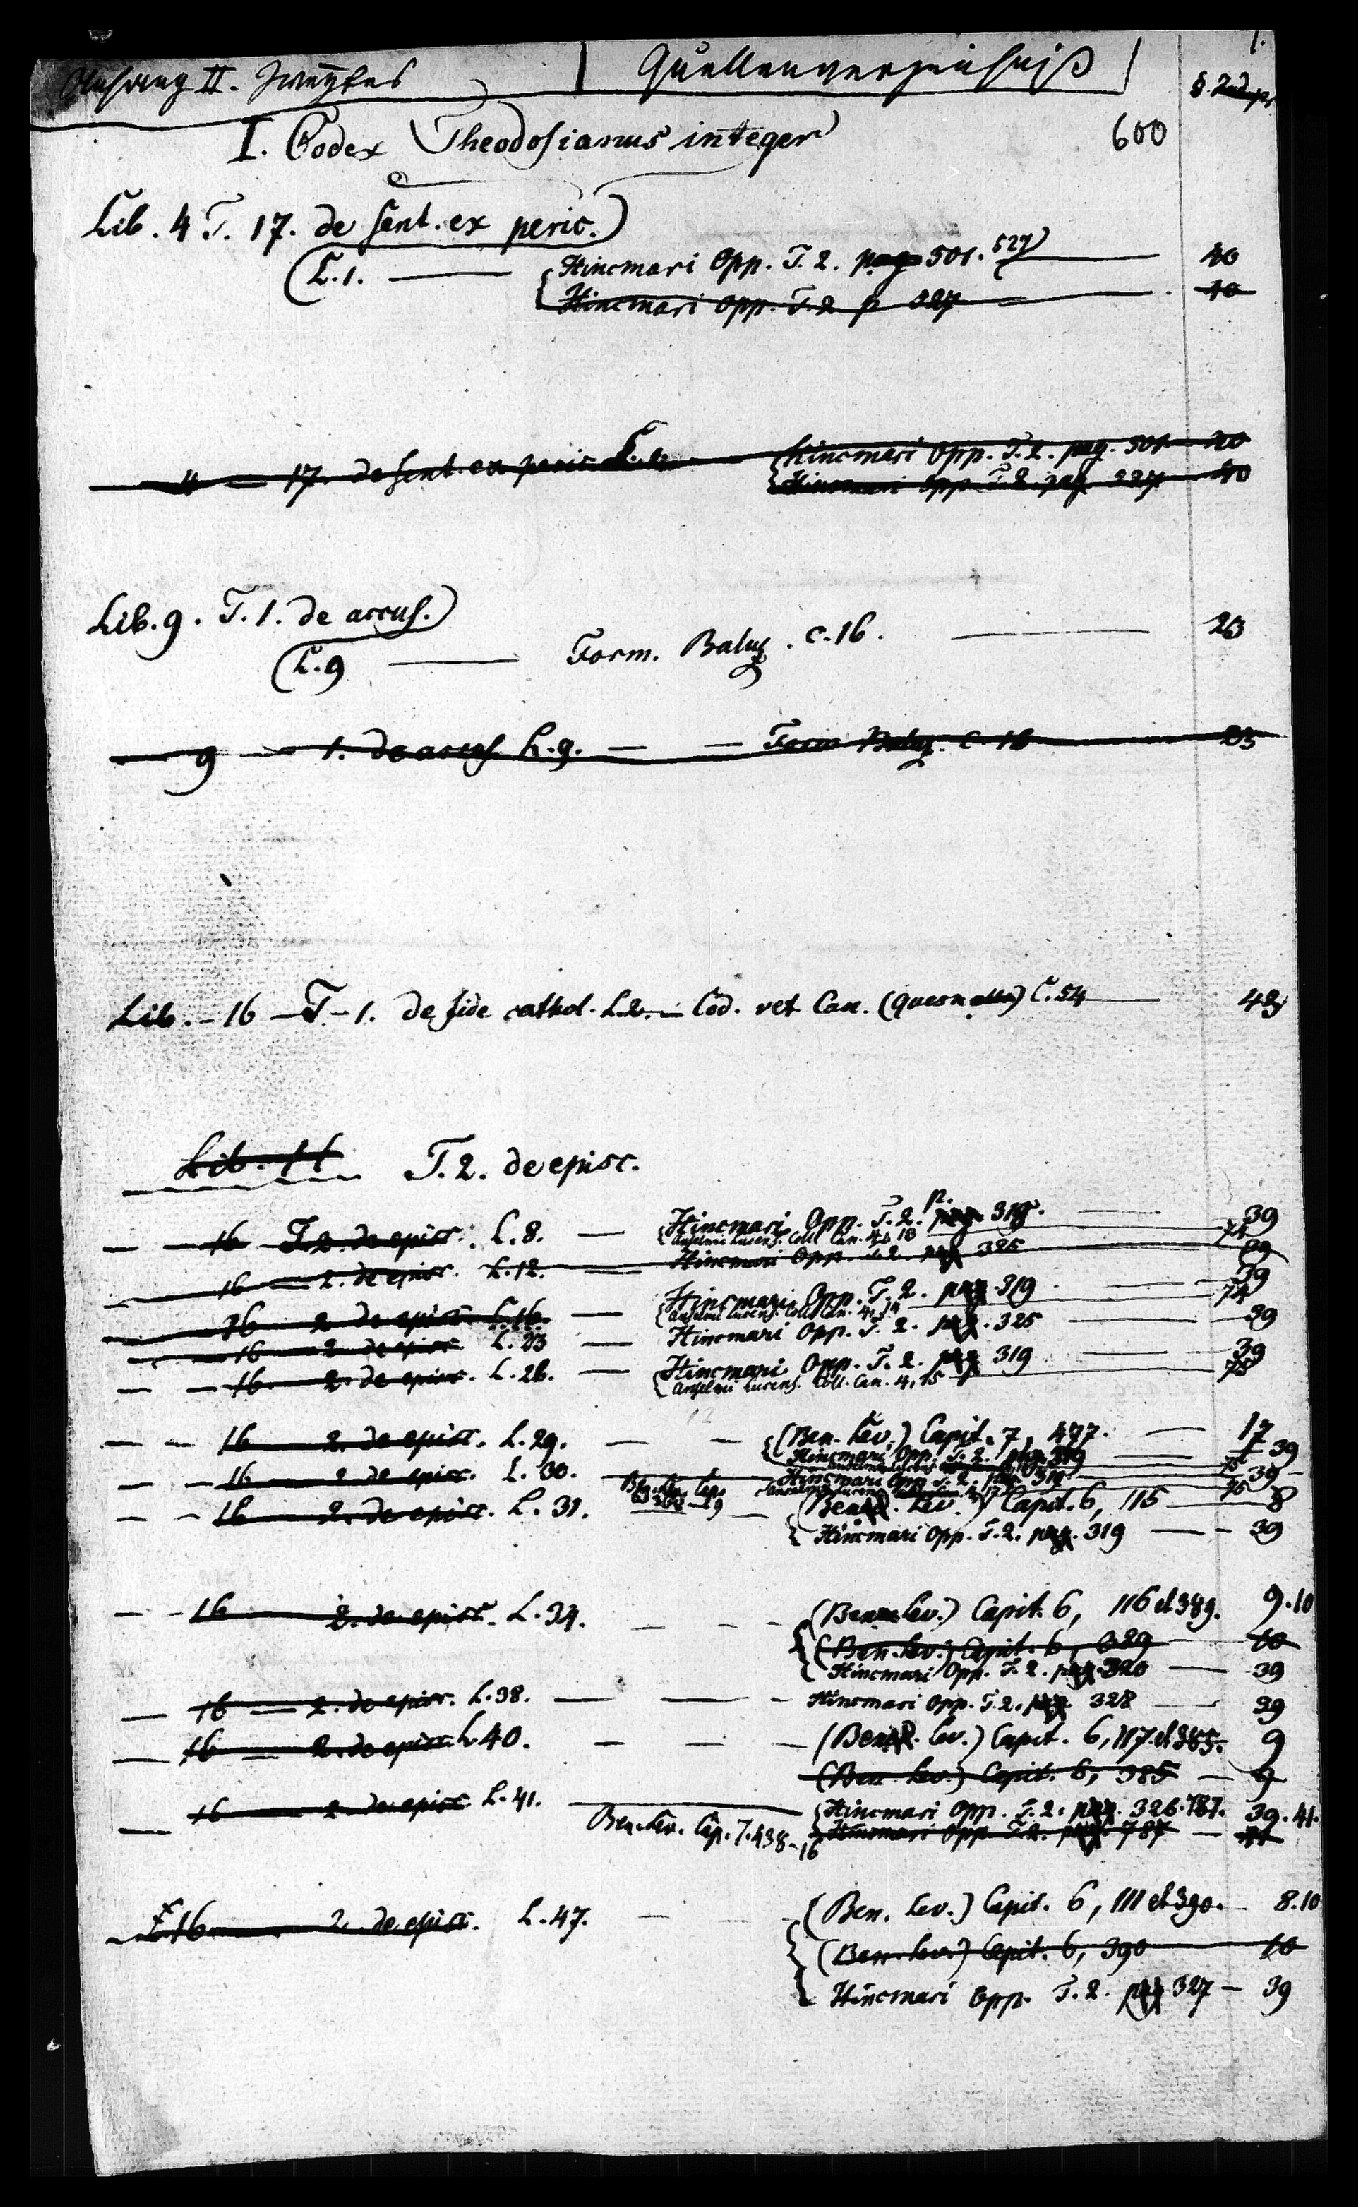 Anhang II. Zweytes Quellenverzeichniß 1.
I. Codex Theodosianus integer 600
Lib. 4 T. 17. de sent. ex peric.
L. 1. — Hincmari Opp. T. 2. pag 501. 527 — 40
Hincmari Opp. T. 2 p 527 — 40
4 — 17. de sent. ex peric. — Hincmari Opp. T. 2. pag. 501 —
Hincmari Opp. T. 2. pag. — 40
Lib. 9. T. 1. de accus.
L. 9 — Form. Baluz. c. 16. — 23
— 9 — 1. de accus. L. 9. — — Form. Baluz. c. 16 — 23
Lib. – 16 – T. – 1. de fide cathol. L. 2. – Cod. vet Can. (Quesnell.) C. 54 —
Lib. T. 2. de episc.
— — 16 T. 2. de episc. L. 8. — Hincmari Opp. T. 2. p. 318. — 39
Anselmi Lucens. Coll. Can. 4, — 74
— 16 — 2. de episc. L. 12. — Hincmari Opp. T. 2. pag 325 — 39
— 16 2 de episc. L. 16. — Hincmari Opp. T. 2. pag 319 — 39
Anselmi Lucens. Coll. Can. 4, 14 — 74
— 16 — 2 de episc. L. 23 — Hincmari Opp. T. 2. pag. 325 — 39
— — 16. — 2. de episc. L. 26. — Hincmari Opp. T. 2. pag 319 — 39
Anselmi Lucens. Coll. Can. 4, 15 — 75
— — 16 — 2. de episc. L. 29. — — (Ben. Lev.) Capit. 7, 477. — 17
Hincmari Opp. T. 2. pag. 319 — 39
— — 16 — 2 de episc. L. 30. — Hincmari Opp. T. 2. pag. 319 — 39
— — 16 — 2. de episc. L. 31. — (Ben. Lev.) Capit. 6, 115 — 8
Hincmari Opp. T. 2. pag. 319 — — 39
— — 16 — 2. de episc. L. 34. — — (Ben. Lev.) Capit. 6, 116 et 389. 9. 10
(Ben. Lev.) Capit. 6, 389 — 10
Hincmari Opp. T. 2. pag. 320 — 39
— 16 — 2. de episc. L. 38. — — — Hincmari Opp. T. 2. pag 328 — 39
— 16 — 2. de episc. L. 40. — — — (Ben. Lev.) Capit. 6, 117. et 385. 9
(Ben. Lev.) Capit. 6, 385 — 9
— 16 — 2. de episc. L. 41. — Hincmari Opp. T. 2. pag. 326. 787. 39. 41.
Ben. Lev. Cap. 7. 438 – 16 Hincmari Opp. T. 2. pag 787 — 41
16 — 2. de episc. L. 47. — — (Ben. Lev.) Capit. 6, 111 et 390. — 8. 10
(Ben. Lev.) Capit. 6, 390 — 10
Hincmari Opp. T. 2. pag 327 — 39